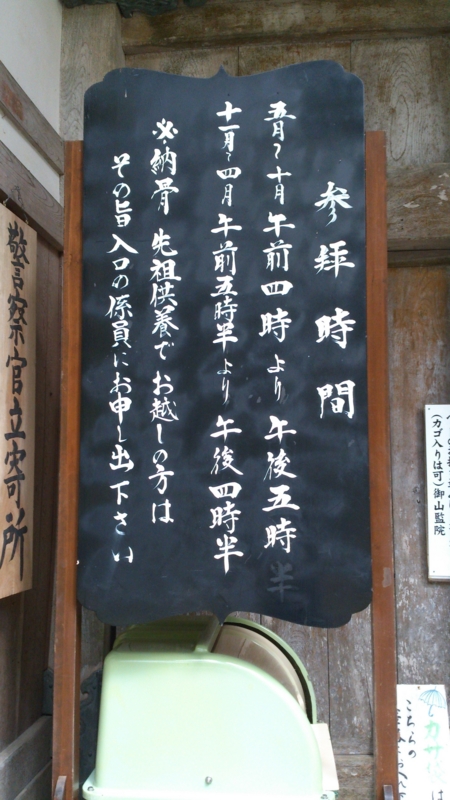 参拝時間
五月〜十月 午前四時より 午後五時半
十一月〜四月 午前五時半より 午後四時半
※納骨 先祖供養で お越しの方は
その旨 入口の係員にお申し出下さい
警察官立寄所
(カゴ入りは可)御山監院
カサ
こちらの